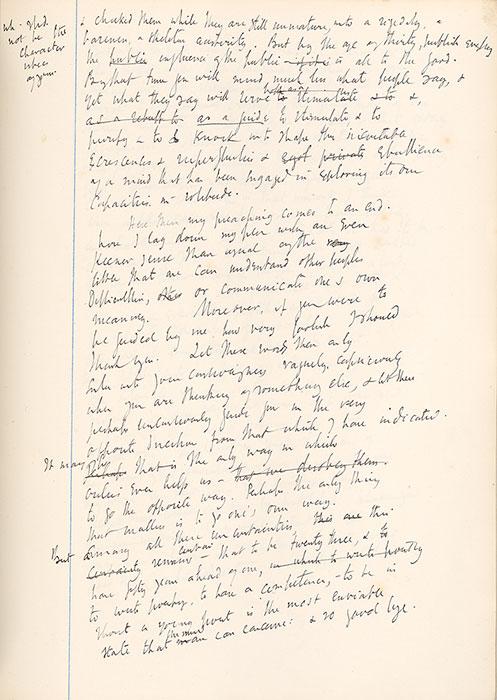 wh. shd.
not be the
character
& checked them while they are still immature, into a rigidity, a
barrenness, a skeleton austerity. But by the age of thirty, publish
the public influence of the public is all to the good.
By that time you will mind much less what people say, &
yet what they say will serve to stimulate &
as a to as a guide to stimulate & to
purify & to knock into shape the inevitable
excrescences & superfluities & private ebullience
of a mind that has been engaged in exploring its own
capacities in solitude.
Here then my preaching comes to an end.
here I lay down my pen with an even
keener sense than usual of the very
little that one can understand other peoples
difficulties, or communicate one's own
meaning. Moreover, if you were to
be guided by me how very foolish I should
think you. Let these words then only
sink into your consciousness vaguely, capriciously
when you are thinking of something else, & let them
perhaps unconsciously guide you in the very
opposite direction from that which I have indicated.
It may be
Perhaps that is the only way in which
ever helps us - that we disobey them.
to go the opposite way. Perhaps the only thing
that matters is to go one's own way.
But among all these uncertainties this one thing
Certainty remains certain that to be twenty three, & to
have fifty years ahead of one, in which to write poetry
to write poetry, to have a competence, - to be in
short a young poet is the most enviable
state that the mind of man can conceive: & so good bye.